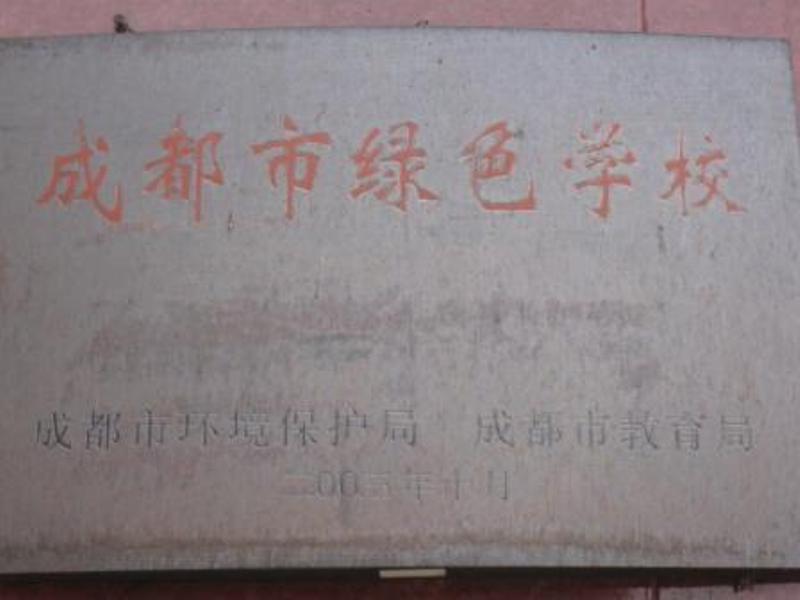 成都市绿色学校
成都市环境保护局 成都市教育局
二00三年十月